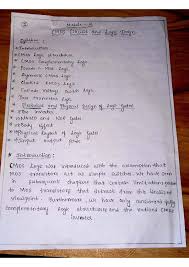 Module-3
CMOS Circuit and Logic Design
Syllabus :-
* Introduction
* CMOS Logic structures
* CMOS Complementary Logic
* Pseudo-n MOS Logic
* Dynamic CMOS Logic
* Clocked CMOS Logic
* Cascade Voltage Switch Logic
* Pass Transistor Logic
* Electrical and Physical Design of Logic Gates
* The Inverter
* NAND and NOR Gates
* Body effect
* Physical Layout of Logic Gates
* Input output Pads
* Introduction :-
CMOS Logic was introduced with the assumption that
MOS transistors act as simple switches. We have seen
Subsequent chapters that certain limitations exist
to MOS transistors that detract from this idealized
viewpoint. Furthermore, we have only considered fully
complementary logic structures and the